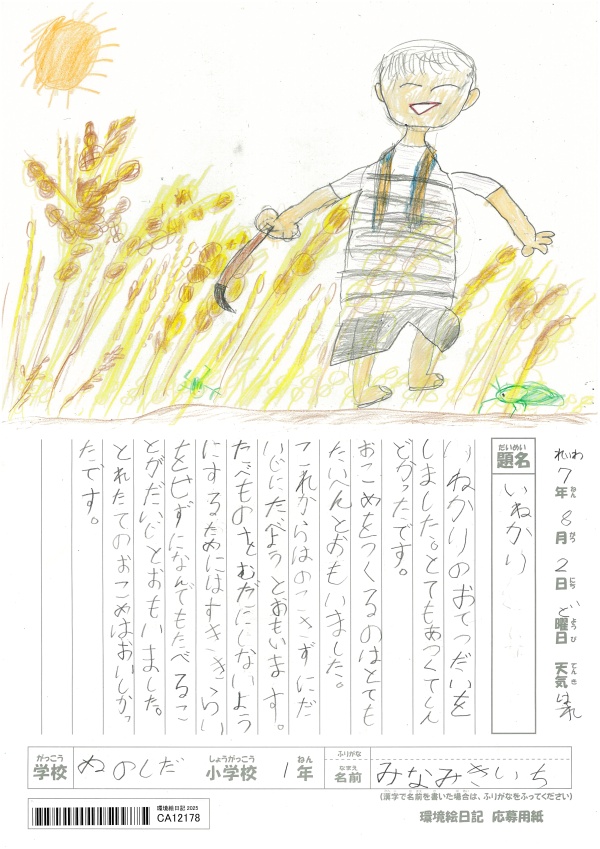 れいわ7年ねん8月がつ2日にちど曜日ようび天気てんきはれ
題名だいめい
いねかり
いねかりのおてつだいを
しました。とてもあつくてしん
どかったです。
おこめをつくるのはとても
たいへんとおもいました。
これからはのこさずにだ
いじにたべようとおもいます。
たべものをむだにしないよう
にするためにはすききらい
をせずになんでもたべるこ
とがだいじとおもいました。
とれたてのおこめはおいしかっ
たです。
がっこう
学校
ぬのしだ
しょうがっこう
小学校
1
ねん
年
ふりがな
なまえ
名前
みなみきいち
(漢字で名前を書いた場合は、ふりがなをふってください)
環境絵日記 2025
CA12178
環境絵日記 応募用紙